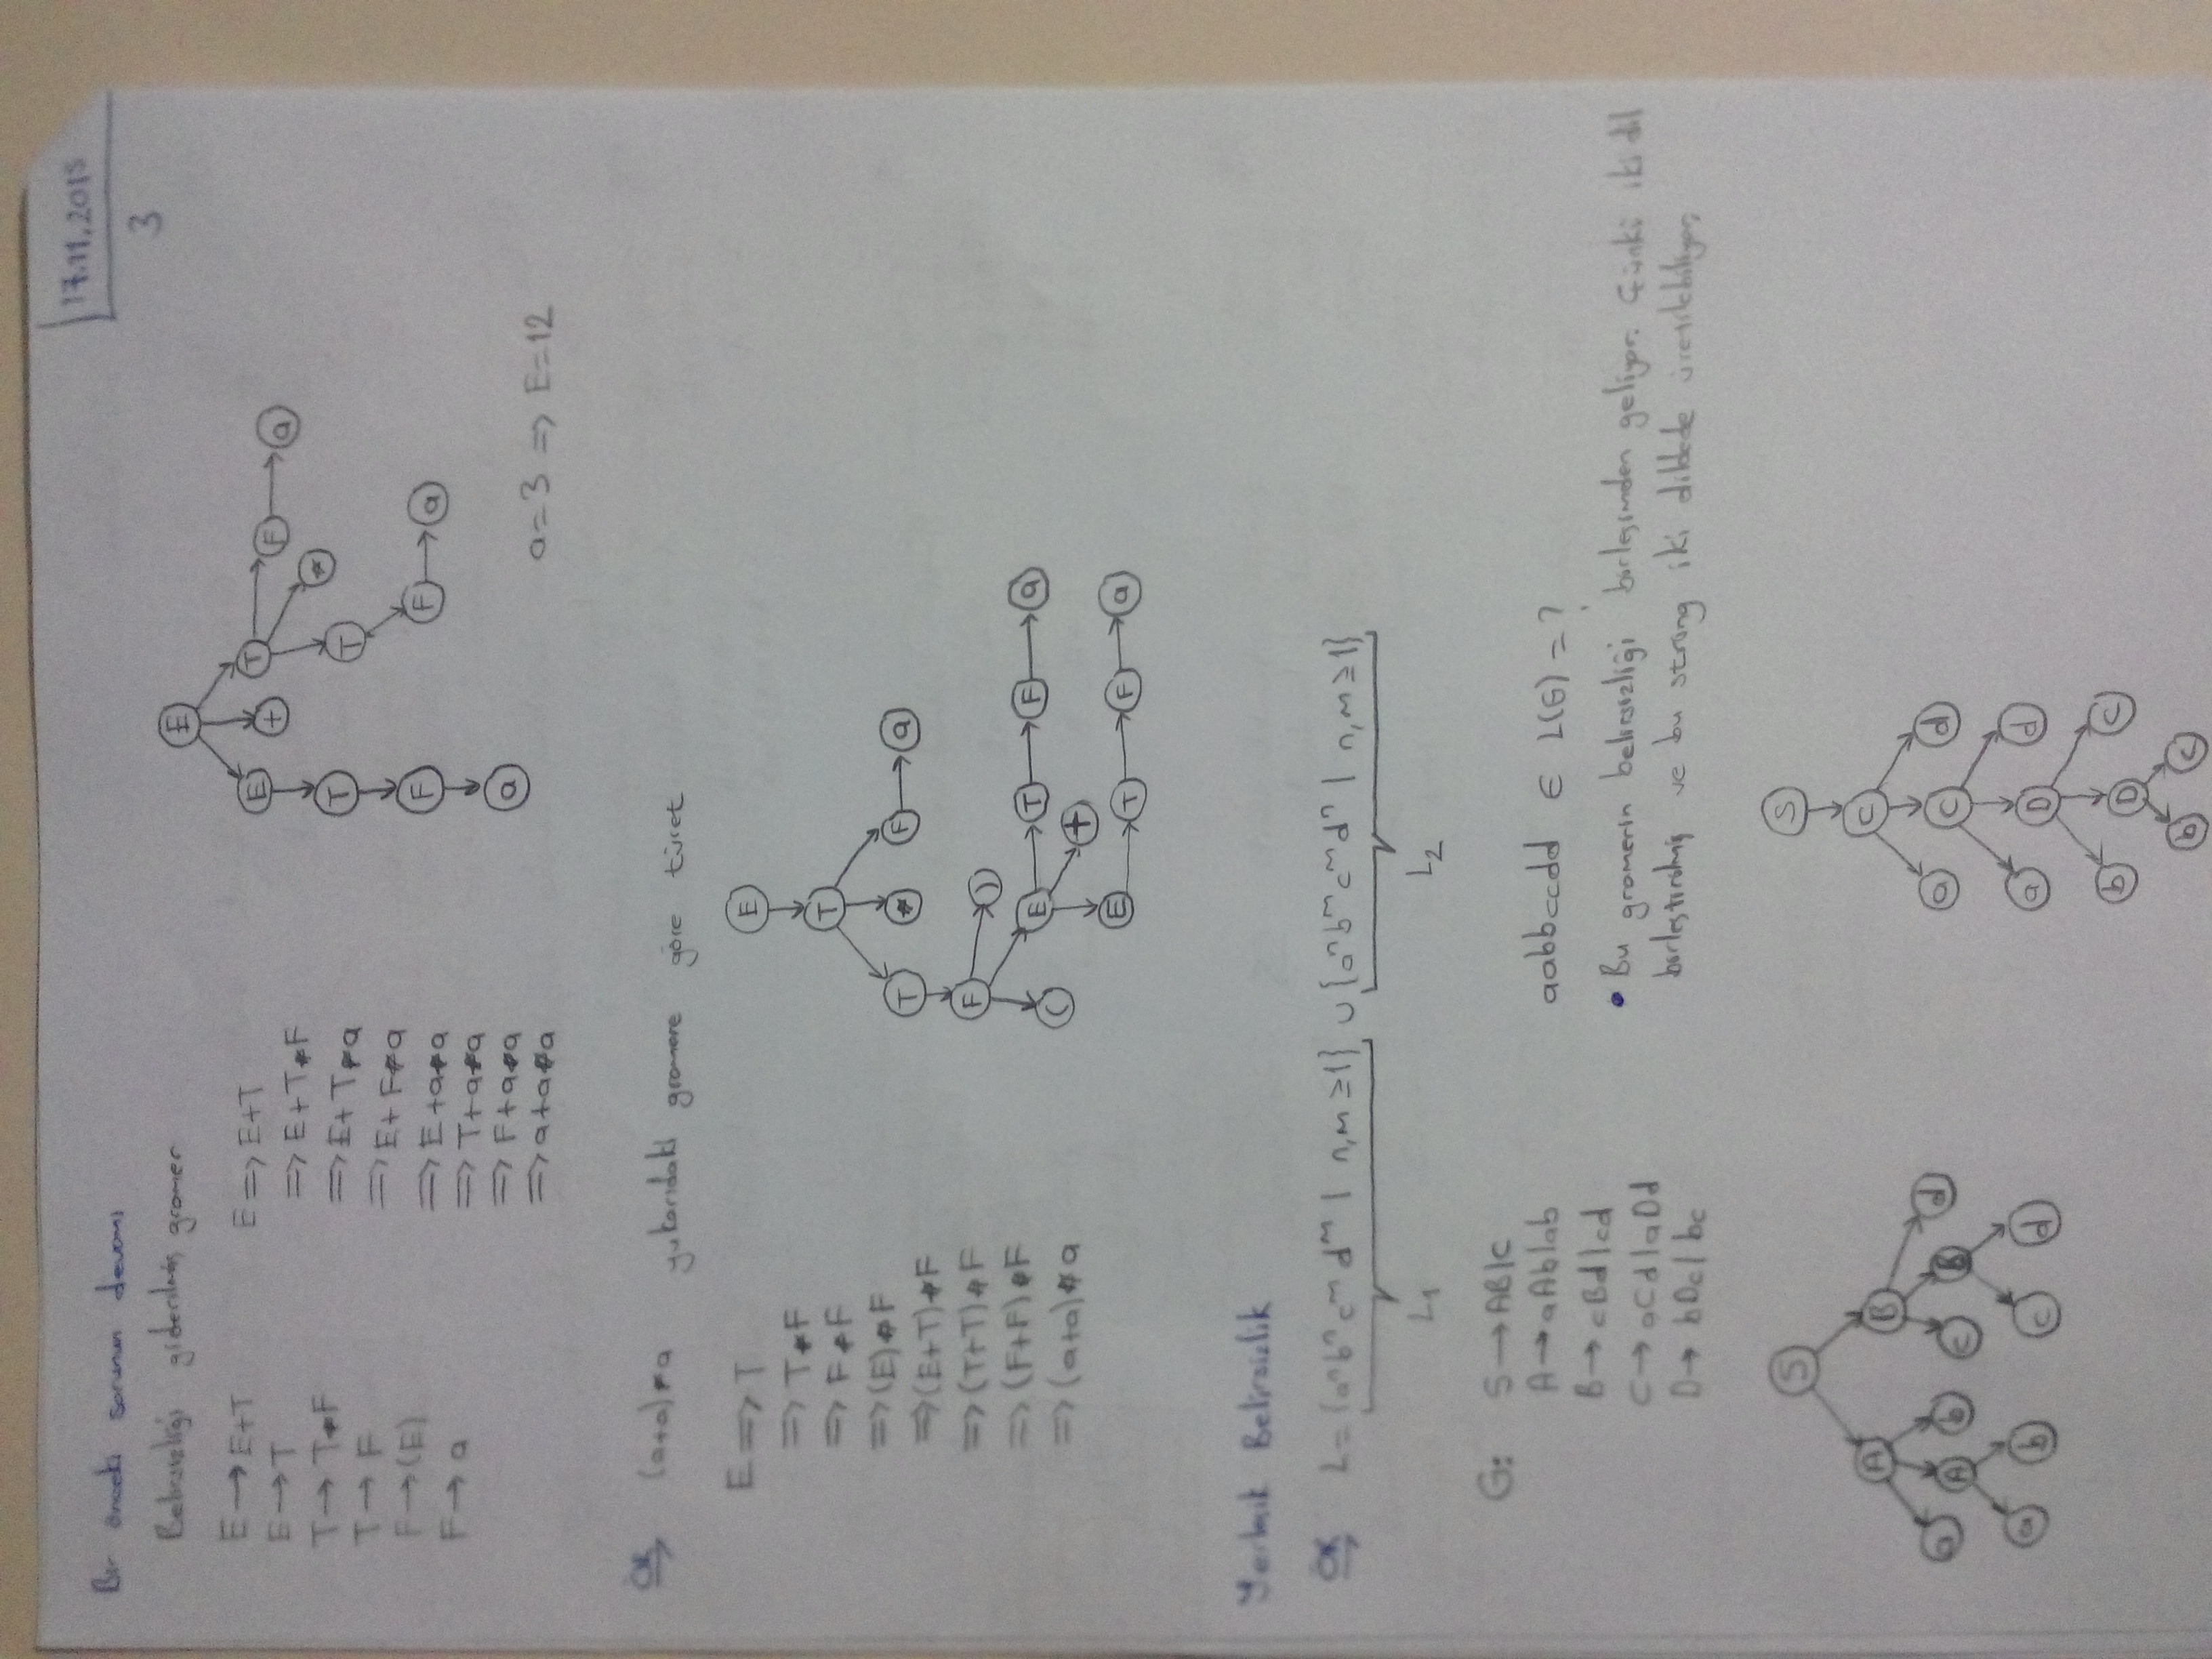 17.11.2015
3
Bir önceki sorunun devamı
Belirsizliği giderilmiş gramer
E → E+T
E → T
T → T*F
T → F
F → (E)
F → a
E => E+T
=> E+T*F
=> E+T*a
=> E+F*a
=> E+a*a
=> T+a*a
=> F+a*a
=> a+a*a
E
E + T F a
T T *
F F a
a
a=3 => E=12
ÖR (a+a)*a yukarıdaki gramere göre türet
E => T
=> T*F
=> F*F
=> (E)*F
=> (E+T)*F
=> (T+T)*F
=> (F+F)*F
=> (a+a)*a
E
T
T * F a
F )
( E T F a
+
E T F a
Belirsizlik
ÖR L={aⁿbⁿcᵐdᵐ | n,m≥1} ∪ {aⁿbᵐcᵐdⁿ | n,m≥1}
L₁ L₂
G: S → AB|C
A → aAb|ab
B → cBd|cd
C → aCd|aDd
D → bDc|bc
aabbccdd ∈ L(G) = ?
• Bu gramerin belirsizliği birleşimden geliyor. Çünkü iki dil
birleştirilmiş ve bu string iki dildede üretilebiliyor.
S
A B
a A b c B d
a b c d
S
C
a C d
a D d
b D c
b c